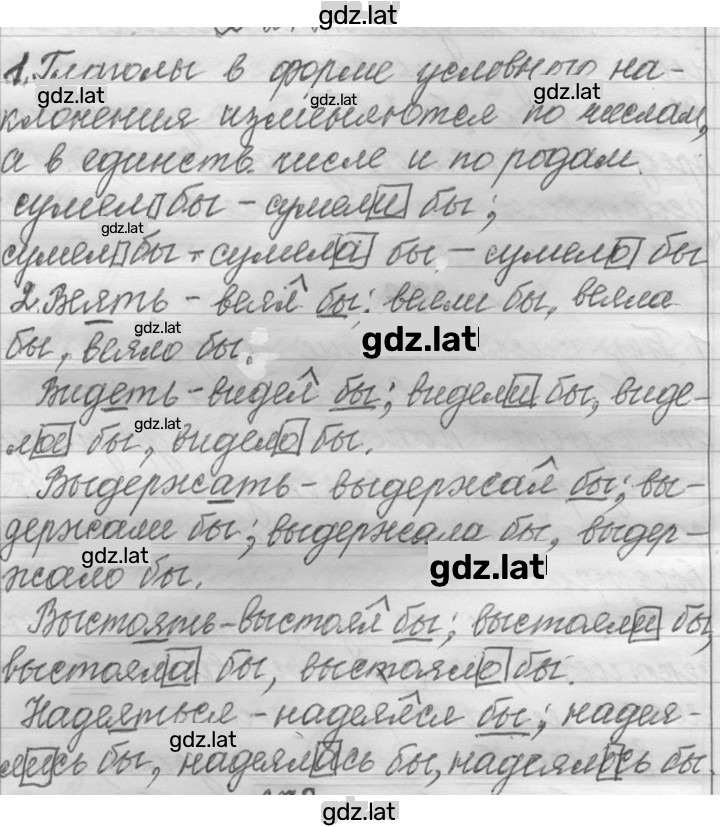 gdz.lat
1. Глаголы в форме условного на-
gdz.lat gdz.lat gdz.lat
клонения изменяются по числам,
а в единств. числе и по родам.
сумел бы - сумели бы;
gdz.lat
сумел бы - сумела бы - сумело бы
2. Веять - веял бы; веяли бы, веяла
gdz.lat gdz.lat
бы, веяло бы.
Видеть - видел бы; видели бы, виде-
gdz.lat
ла бы, видело бы.
Выдержать - выдержал бы; вы-
держали бы; выдержала бы, выдер-
gdz.lat gdz.lat
жало бы.
Выстоять - выстоял бы; выстояли бы,
выстояла бы, выстояло бы.
Надеяться - надеялся бы; надея-
gdz.lat
лись бы, надеялась бы, надеялось бы.
gdz.lat